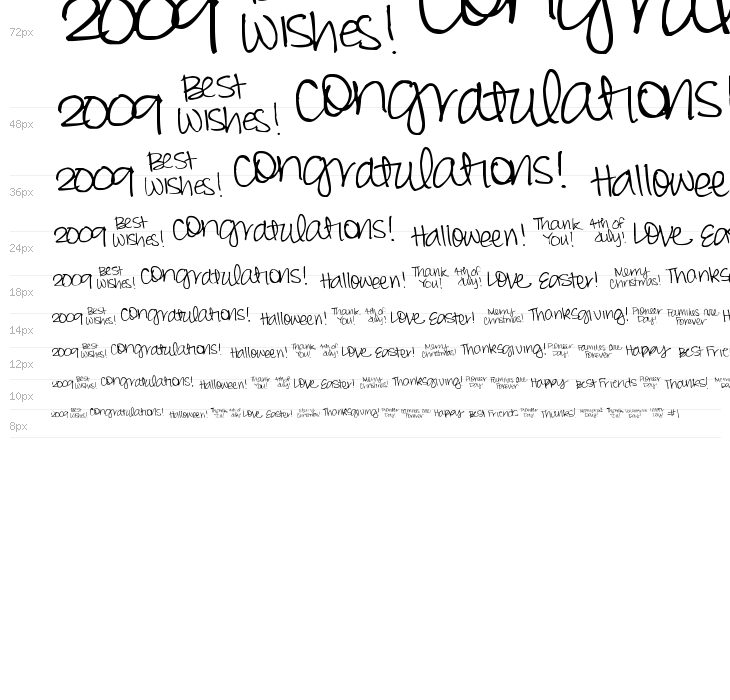 72px 2009 Best Wishes! Congratula
48px 2009 Best Wishes! Congratulations!
36px 2009 Best Wishes! Congratulations! Hallowee
24px 2009 Best Wishes! Congratulations! Halloween! Thank You! 4th of July! Love Ea
18px 2009 Best Wishes! Congratulations! Halloween! Thank You! 4th of July! Love Easter! Merry Christmas! Thanks
14px 2009 Best Wishes! Congratulations! Halloween! Thank You! 4th of July! Love Easter! Merry Christmas! Thanksgiving! Pioneer Day! Families are Forever H
12px 2009 Best Wishes! Congratulations! Halloween! Thank You! 4th of July! Love Easter! Merry Christmas! Thanksgiving! Pioneer Day! Families are Forever Happy Best Frie
10px 2009 Best Wishes! Congratulations! Halloween! Thank You! 4th of July! Love Easter! Merry Christmas! Thanksgiving! Pioneer Day! Families are Forever Happy Best Friends Pioneer Day! Thanks!
8px 2009 Best Wishes! Congratulations! Halloween! Thank You! 4th of July! Love Easter! Merry Christmas! Thanksgiving! Pioneer Day! Families are Forever Happy Best Friends Pioneer Day! Thanks! #1